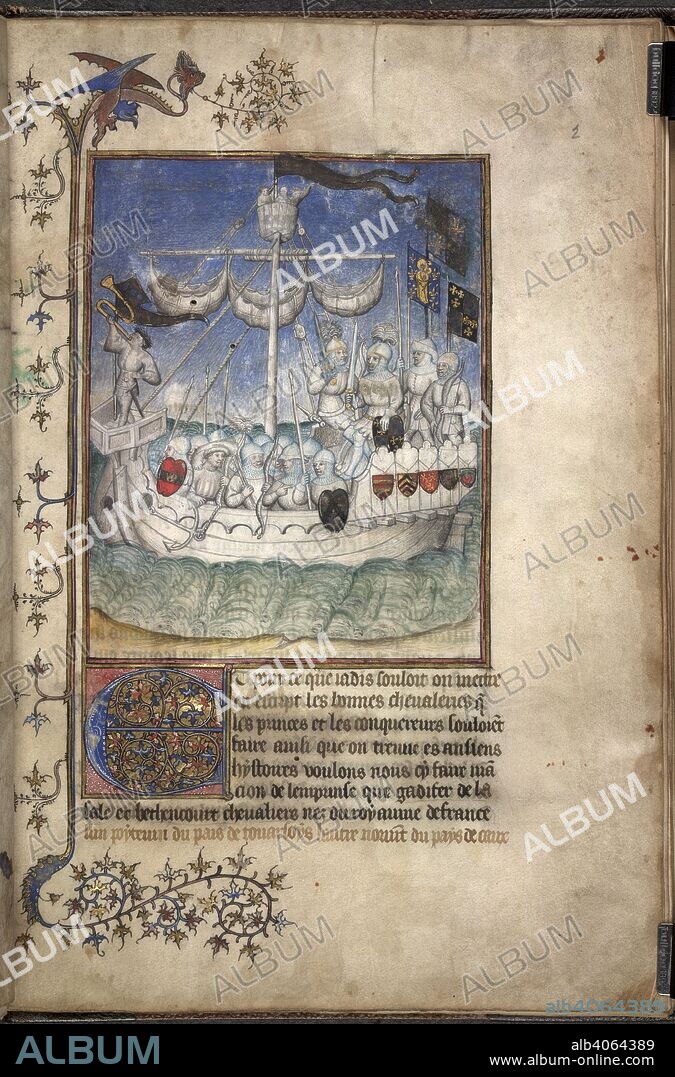 2
ET pour ce que iadis souloit on mectre
en escript les bonnes cheualeries q̄
les princes et les conquereurs souloiẽt
faire ainsi que on treuue es ansiens
hystoires voulons nous cy faire mã
cion de lemprinse que gadifer de la
sale et bethencourt cheualiers nez du royaume de france
lun poyteuin du pais de touarsoys lautre normt du pays de caux
ALBUM
alb4064389
ALBUM
alb4064389
www.album-online.com